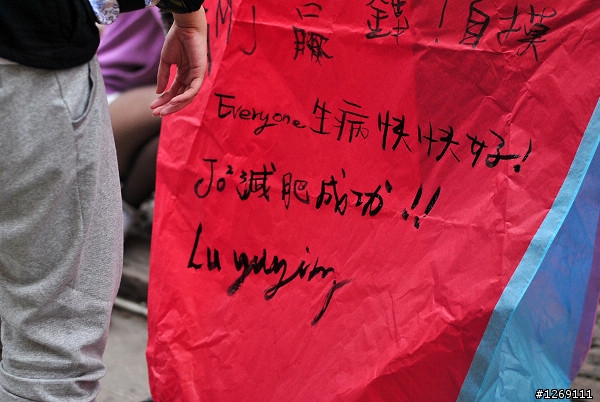 MJ
鐘!自摸
Everyone 生病快快好!
Jo² 減肥成功!!
Lu yuyin
#1269111